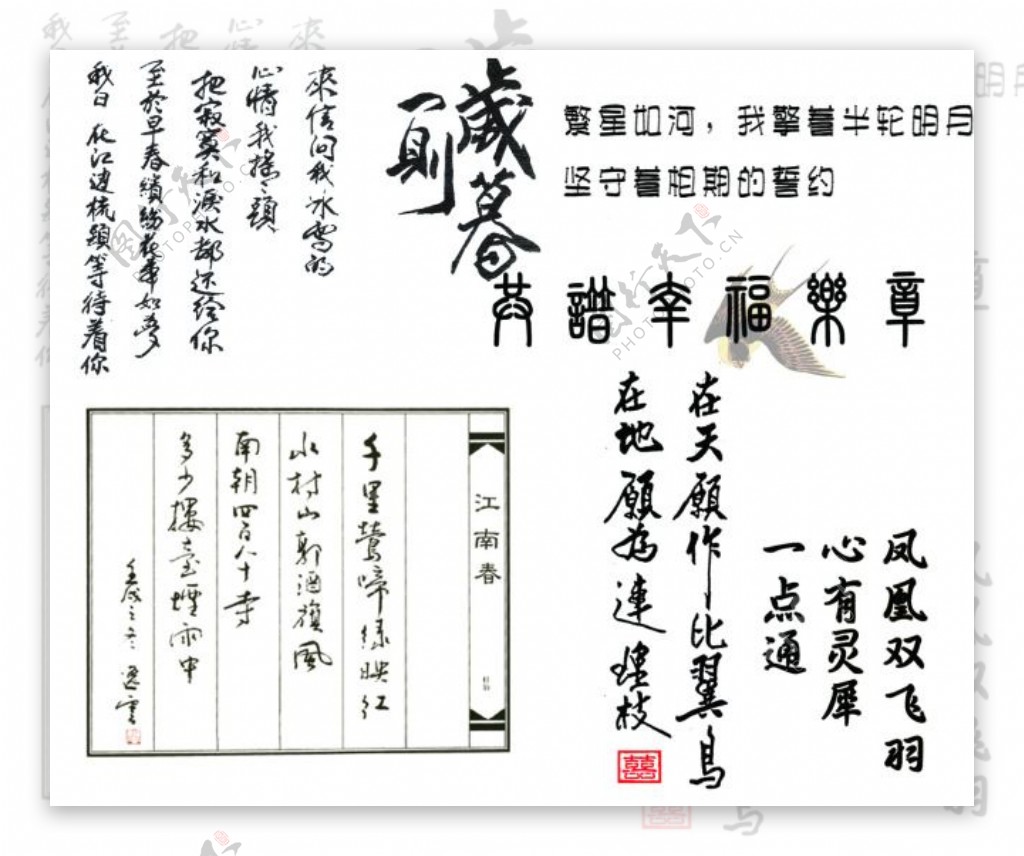 歲暮
一則
來信問我冰雪的
心情我搖〻頭
把寂寞和淚水都还给你
至於早春繽紛花事如夢
我日 在江边梳頭等待着你
繁星如河，我擎着半轮明月
坚守着相期的誓约
共諧幸福樂章
江南春
千里鶯啼綠映红
水村山郭酒旗風
南朝四百八十寺
多少樓臺煙雨中
在天願作比翼鳥
在地願為連理枝
囍
凤凰双飞羽
心有灵犀
一点通
图行天下
PHOTOPHOTO.CN